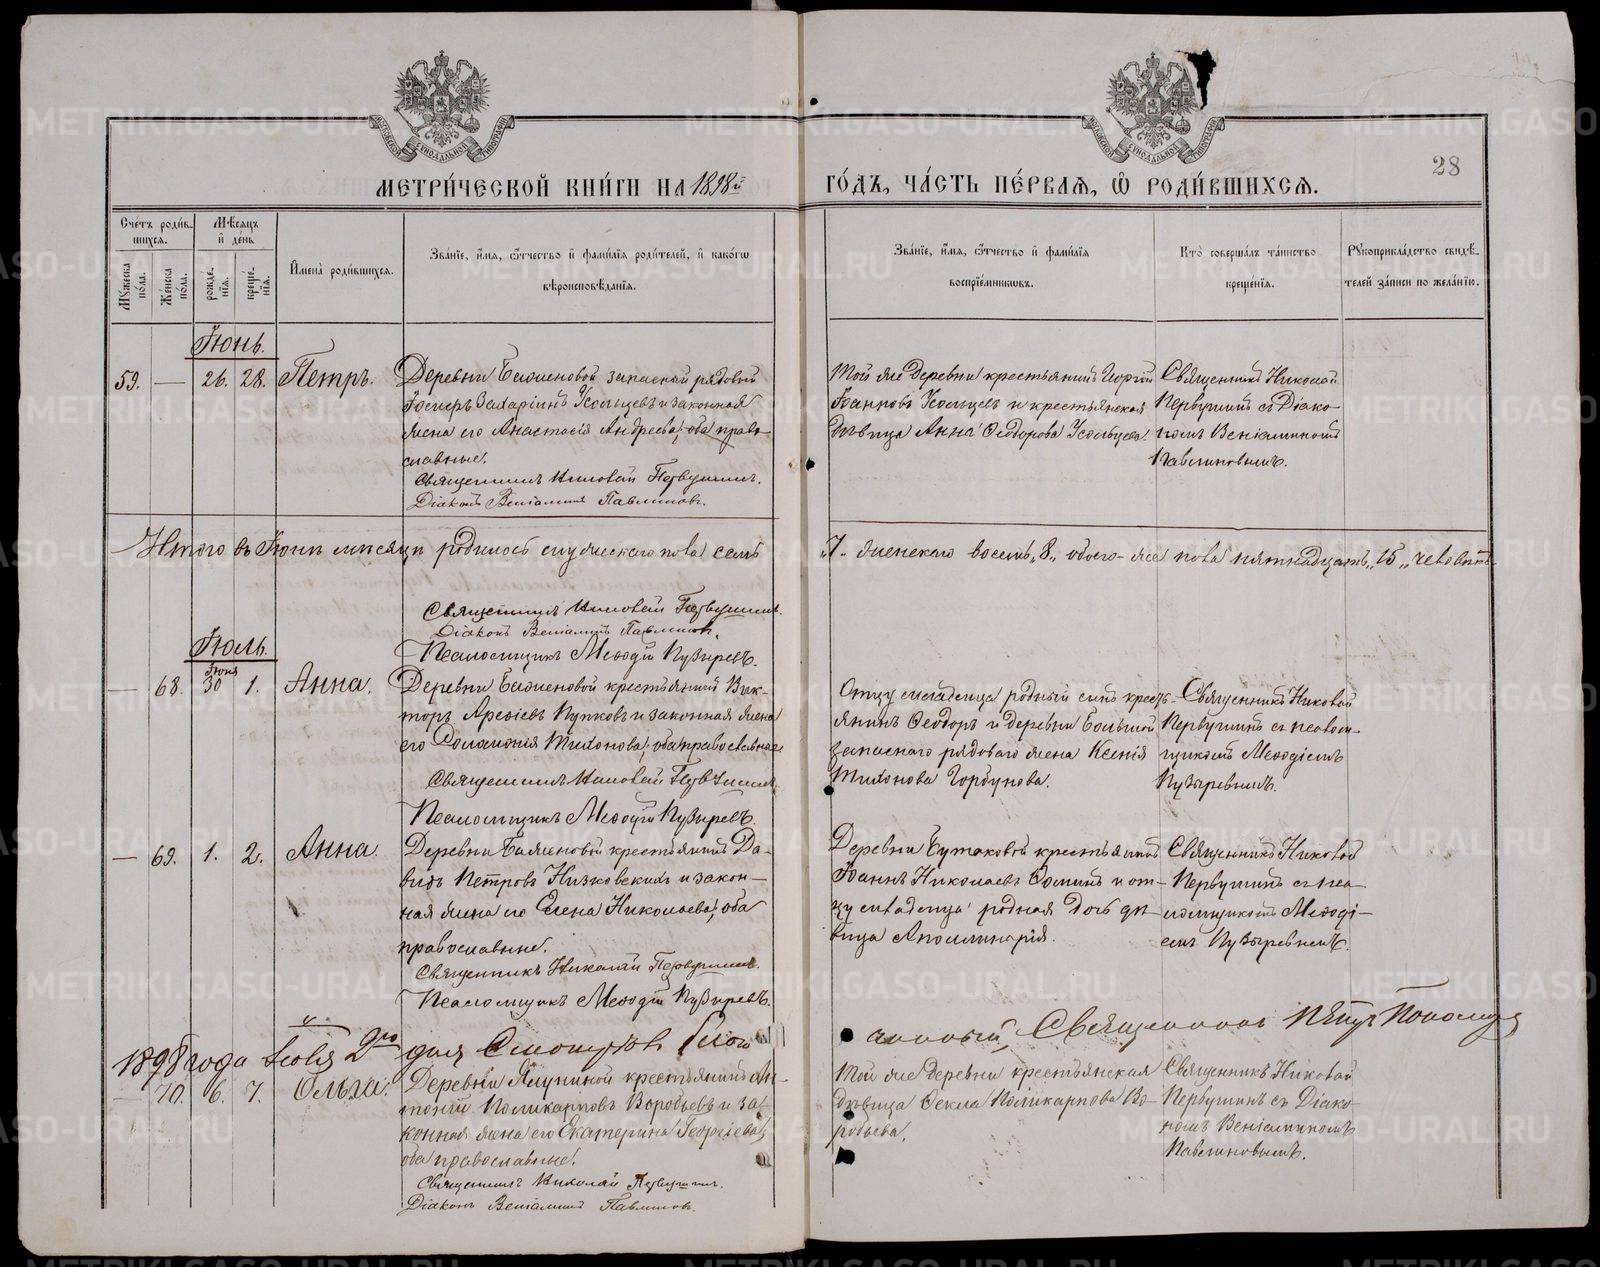 МЕТРИ́ЧЕСКОЙ КНИ́ГИ НА 1898й ГО́ДЪ, ЧА́СТЬ ПЕ́РВАѦ, Ѽ РОДИ́ВШИХСѦ.
28
Сче́тъ роди́в-
шихся.
Мѣ́сяцъ
и҆ де́нь
Му́жеска по́ла.
Же́нска по́ла.
рожде́нїя.
креще́нїя.
И҆мена̀ роди́вшихся.
Зва́нїе, и҆́мя, ѻ҆́тчество и҆ фами́лїя роди́телей, и҆ како́гѡ
вѣроисповѣ́данїя.
Зва́нїе, и҆́мя, ѻ҆́тчество и҆ фами́лїя
воспрїе́мниковъ.
Кто̀ соверша́лъ та́инство
креще́нїя.
Рꙋкоприкла́дство свидѣ́-
телей за́писи по жела́нїю.
Іюнь.
59. — 26. 28. Петръ.
Деревни Баженовой запасной рядовой
Іосифъ Захаріинъ Усольцевъ и законная
жена его Анастасія Андреева, оба право-
славные.
Священникъ Николай Первушинъ.
Діаконъ Веніаминъ Павлиновъ.
Той же деревни крестьянинъ Георгій
Іоанновъ Усольцевъ и крестьянская
дѣвица Анна Ѳеодорова Усольцева.
Священникъ Николай
Первушинъ съ Діако-
номъ Веніаминомъ
Павлиновымъ.
Итого въ Іюнѣ мѣсяцѣ родилось мужескаго пола семь „7„ женскаго восемь „8„ обоего же пола пятнадцать „15„ человѣкъ.
Священникъ Николай Первушинъ.
Діаконъ Веніаминъ Павлиновъ.
Псаломщикъ Меѳодій Пузыревъ.
Іюль.
Іюня
— 68. 30 1. Анна.
Деревни Баженовой крестьянинъ Вик-
торъ Ареѳіевъ Пупковъ и законная жена
его Соломонія Тихонова, оба православные
Священникъ Николай Первушинъ.
Псаломщикъ Меѳодій Пузыревъ.
Отцу младенца родный сынъ кресть-
янинъ Ѳеодоръ и деревни Большой
запаснаго рядоваго жена Ксенія
Тихонова Горбунова.
Священникъ Николай
Первушинъ съ псалом-
щикомъ Меѳодіемъ
Пузыревымъ.
— 69. 1. 2. Анна.
Деревни Баженовой крестьянинъ Да-
видъ Петровъ Низковскихъ и закон-
ная жена его Елена Николаева, оба
православные.
Священникъ Николай Первушинъ.
Псаломщикъ Меѳодій Пузыревъ.
Деревни Бутаковой крестьянинъ
Іоаннъ Николаевъ Соминъ и от-
цу младенца родная дочь дѣ-
вица Аполлинарія.
Священникъ Николай
Первушинъ съ пса-
ломщикомъ Меѳоді-
емъ Пузыревымъ.
1898 года 2го дня Священникъ Петръ
— 70. 6. 7. Ольга.
Деревни Ялуниной крестьянинъ Ан-
тоній Поликарповъ Воробьевъ и за-
конная жена его Екатерина Георгіева,
оба православные.
Священникъ Николай Первушинъ.
Діаконъ Веніаминъ Павлиновъ.
Той же деревни крестьянская
дѣвица Ѳекла Поликарпова Во-
робьева.
Священникъ Николай
Первушинъ съ Діако-
номъ Веніаминомъ
Павлиновымъ.
METRIKI.GASO-URAL.RU